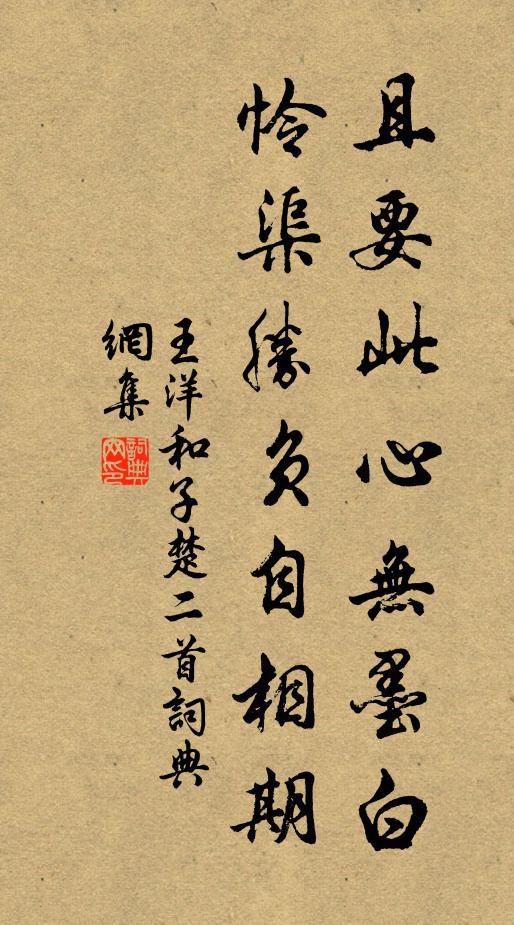 且要此心無墨白
怜渠勝負自相期
王洋和子楚二首詞典
網集
詞典網印